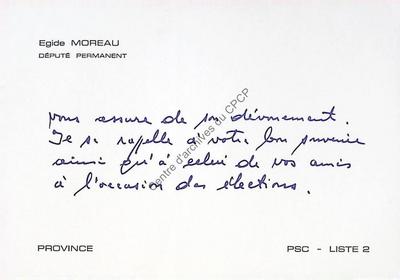 Egide MOREAU
DÉPUTÉ PERMANENT
vous assure de son dévouement.
Il se rappelle à votre bon souvenir
ainsi qu'à celui de vos amis
à l'occasion des élections.
Centre d'archives du CPCP
PROVINCE
PSC - LISTE 2